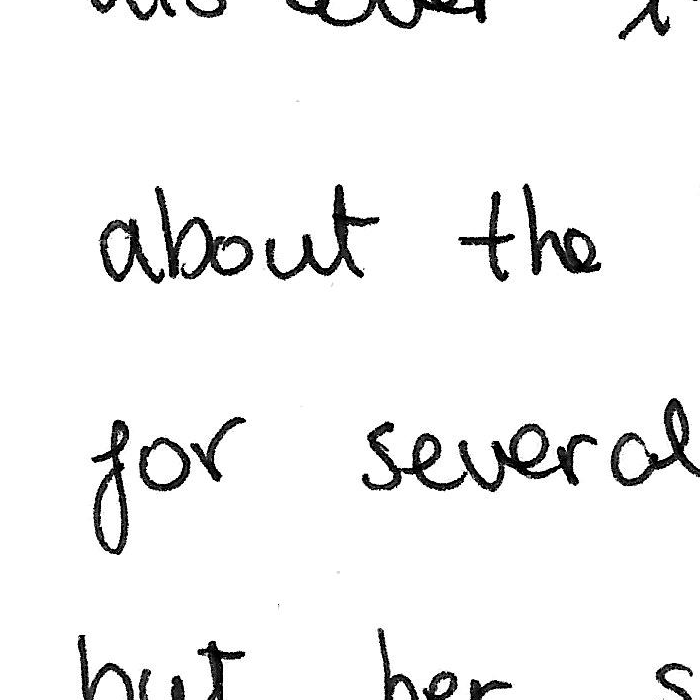 about the
for several
but her